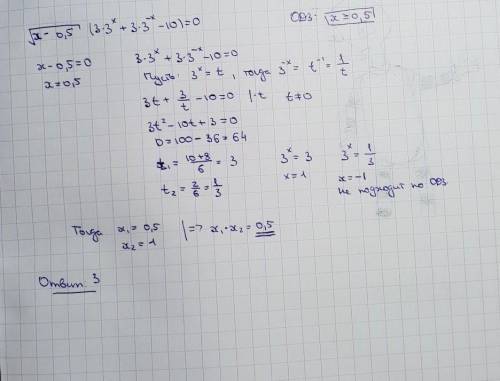 √(x-0,5) (3·3^x + 3·3^-x - 10) = 0
ОДЗ: x ≥ 0,5
x - 0,5 = 0
x = 0,5
3·3^x + 3·3^-x - 10 = 0
Пусть 3^x = t, тогда 3^-x = t^-1 = 1/t
3t + 3/t - 10 = 0 |·t t ≠ 0
3t² - 10t + 3 = 0
D = 100 - 36 = 64
t₁ = (10+8)/6 = 3
t₂ = 2/6 = 1/3
3^x = 3
x = 1
3^x = 1/3
x = -1
не подходит по ОДЗ
Тогда x₁ = 0,5
x₂ = 1
|=> x₁·x₂ = 0,5
Ответ: 3